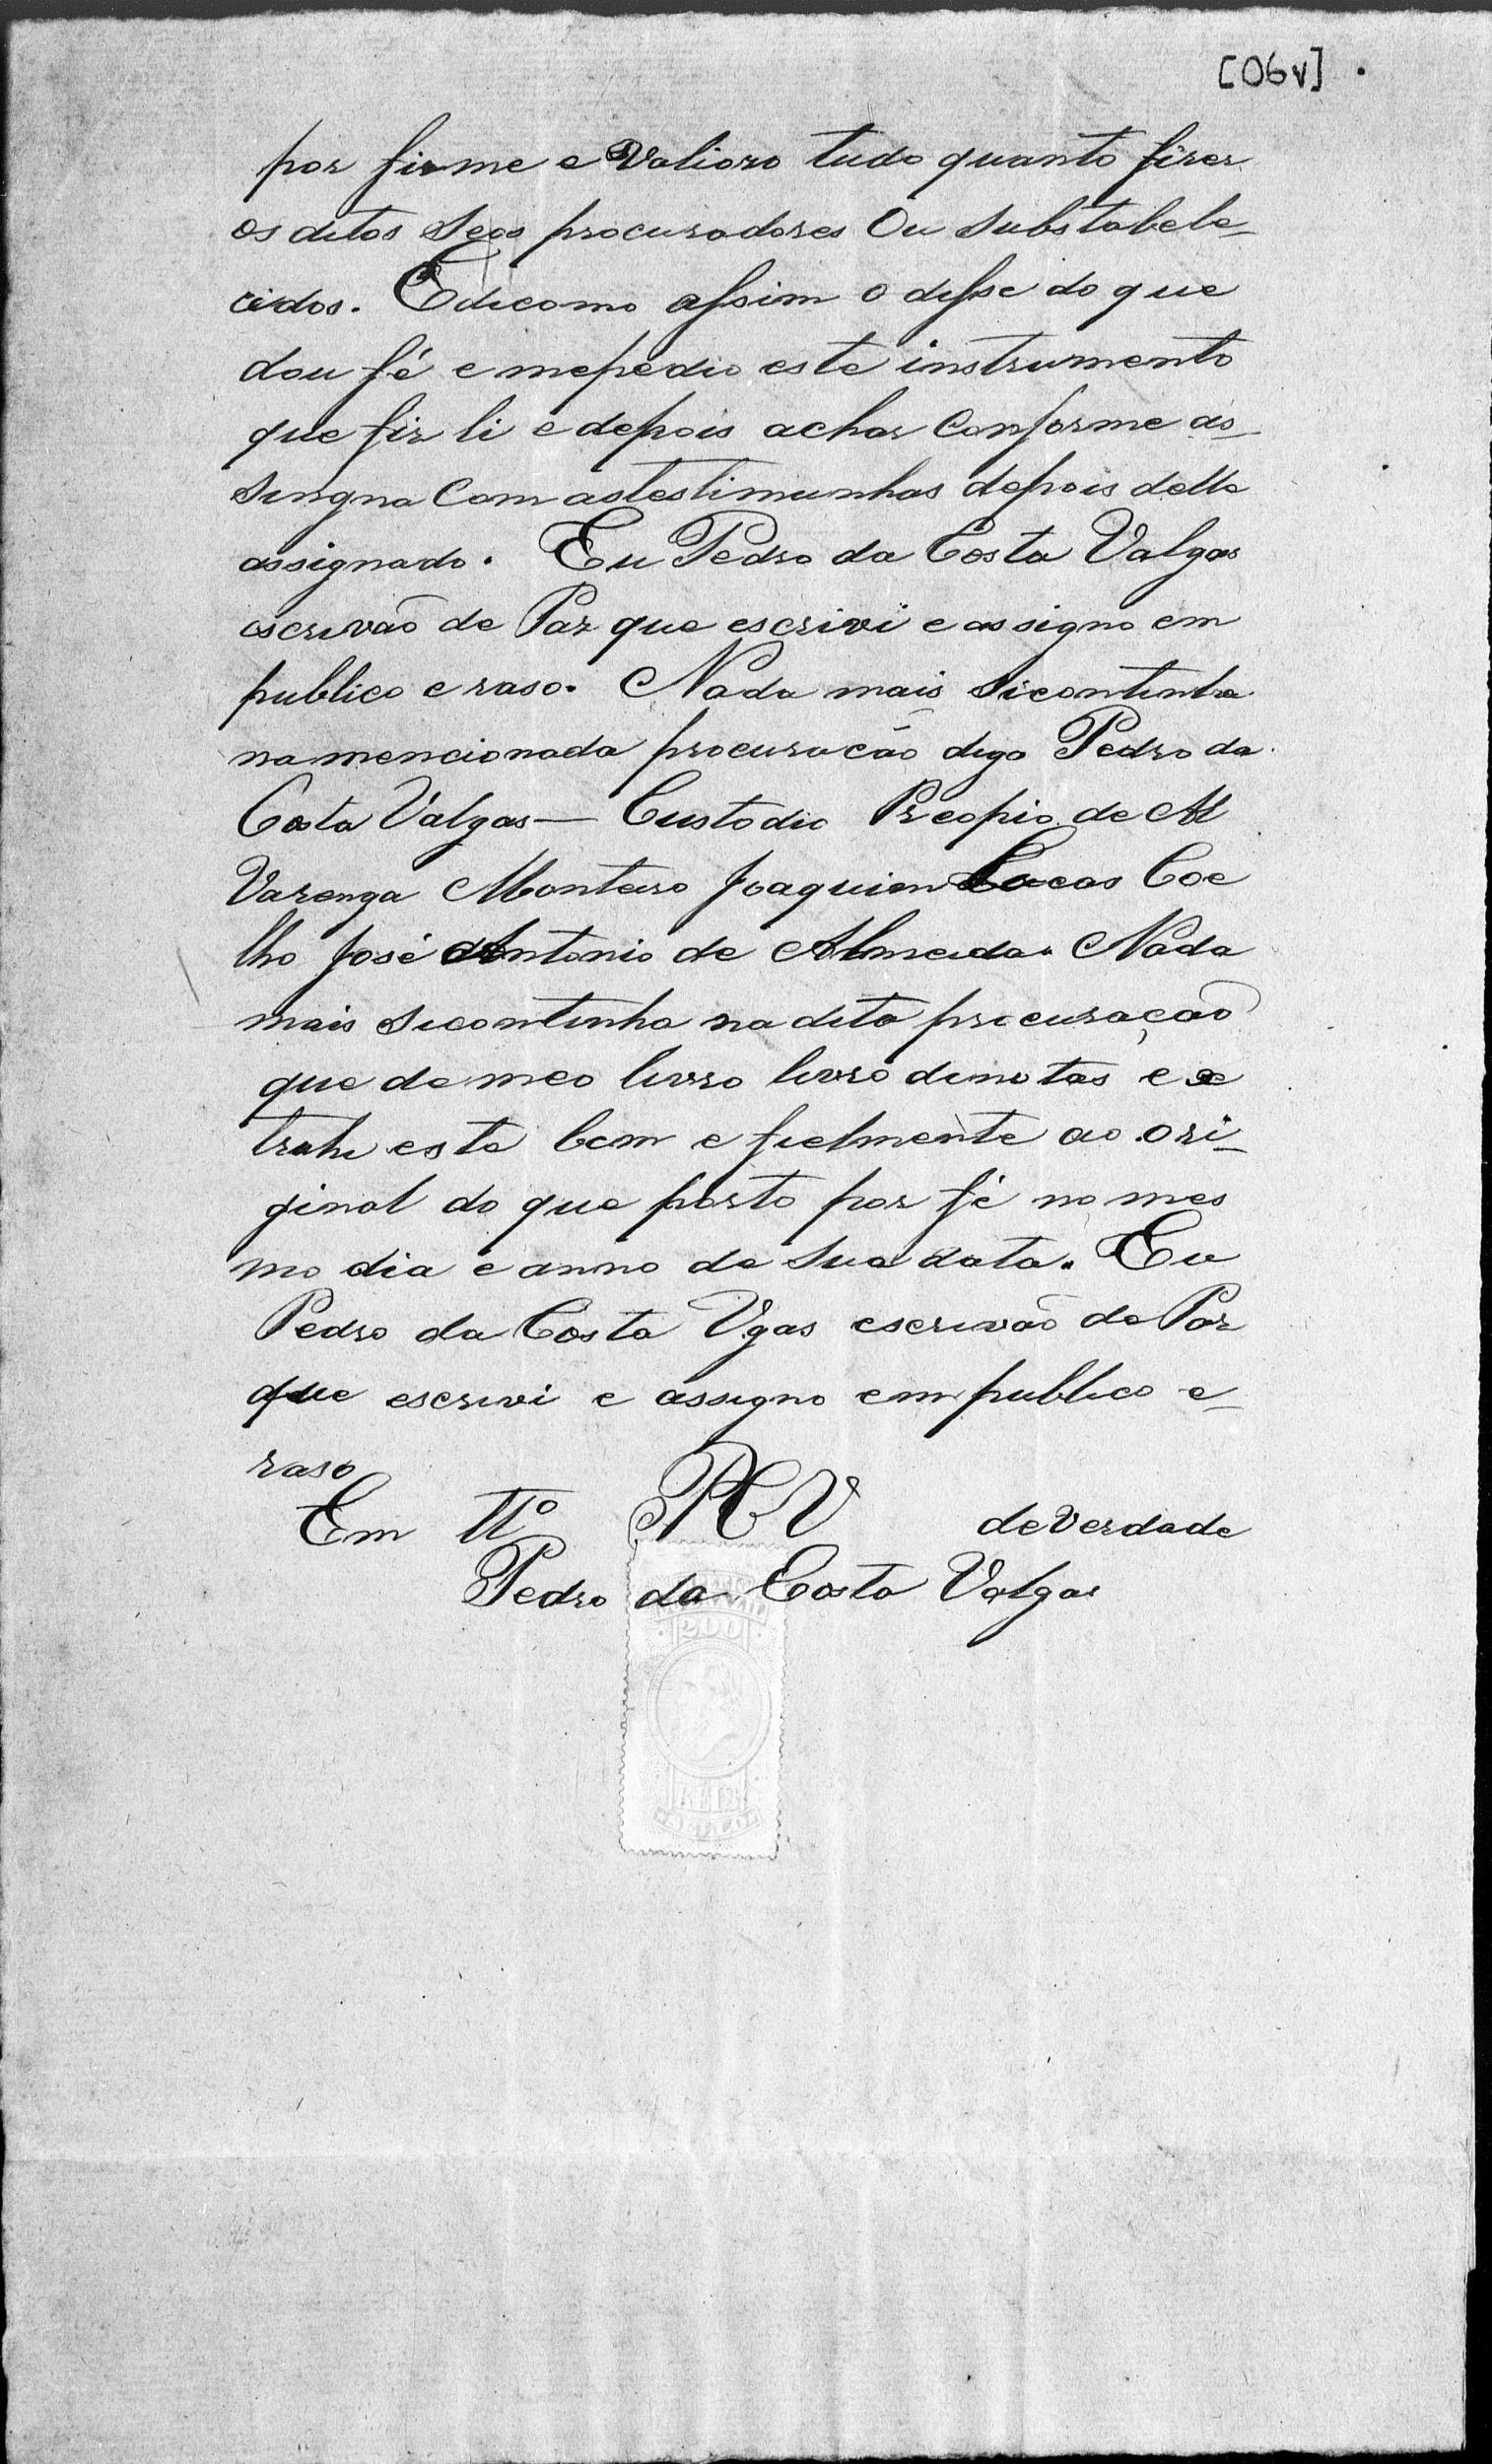 [06v]
por firme e Valiozo tudo quanto fizer
os ditos Seos procuradores Ou Substabele-
cidos. E dicomo assim o disse do que
dou fé e mepedio este instrumento
que fiz li e depois achar Conforme as-
singna Com astestimunhas depois della
assignado. Eu Pedro da Costa Valgas
escrivaõ de Paz que escrivi e assigno em
publico e raso. Nada mais Sicontinha
na mencionada procuracão digo Pedro da
Costa Valgas — Custodio Precopio de Al
Varenga Monteiro Joaquim Lucas Coe
lho José Antonio de Almeida. Nada
mais sicontinha na dita procuraçaõ
que de meo livro livro dinotas e e
trahi este bem e fielmente ao ori-
ginal do que porto por fé no mes
mo dia e anno de Sua data. Eu
Pedro da Costa Vgas escrivaõ de Paz
que escrivi e assigno em publico e-
raso
Em tt.º PCV de Verdade
Pedro da Costa Valgas
200
REIS